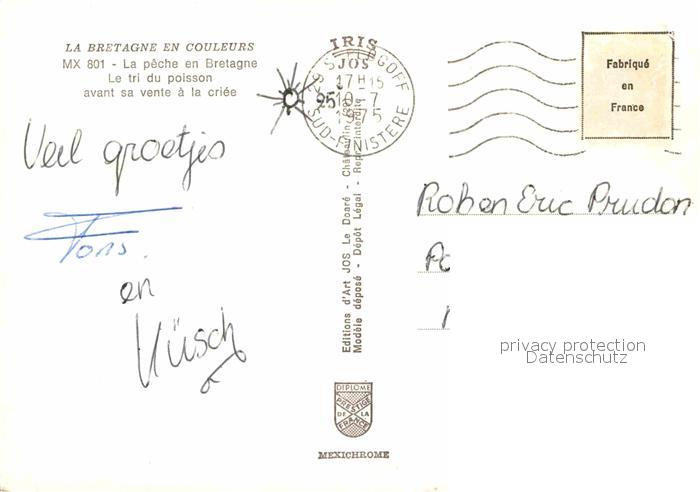 LA BRETAGNE EN COULEURS
MX 801 - La pêche en Bretagne
Le tri du poisson
avant sa vente à la criée
Veel groetjes
Fons.
en
IRIS
JOS
17 H 15
10-7
1975
SUD-FINISTÈRE
Editions d'Art JOS Le Doaré - Châteaulin
Modèle déposé - Dépôt Légal - Repr. interdite
DIPLOME
PRESTIGE
DE LA
FRANCE
MEXICHROME
Fabriqué
en
France
Rob en Eric Prudon
privacy protection
Datenschutz